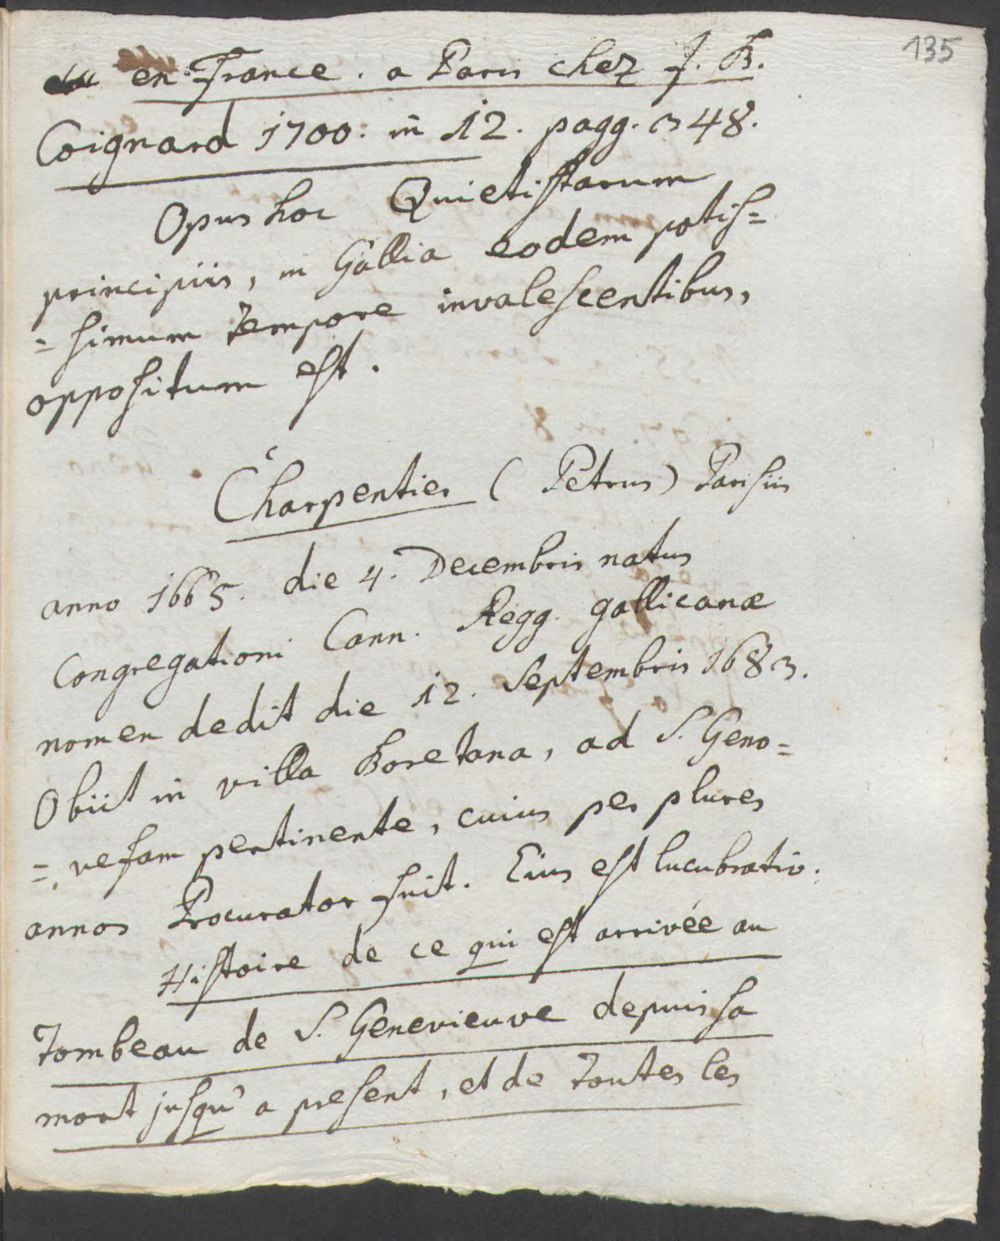 135
en France. a Paris chez J. B.
Coignard 1700. in 12. pagg. 348.
Opus hoc Quietistarum
principiis, in Gallia eodem potis=
=simum tempore invalescentibus,
oppositum est.
Charpentier (Petrus) Parisiis
anno 1665. die 4. Decembris natus
Congregationi Cann. Regg. gallicanæ
nomen dedit die 12. Septembris 1683.
Obiit in villa Boretana, ad S. Geno=
=vefam pertinente, cuius per plures
annos Procurator fuit. Eius est lucubratio.
Histoire de ce qui est arrivée au
Tombeau de S. Genevieuve depuis sa
mort jusqu'a present, et de toutes les